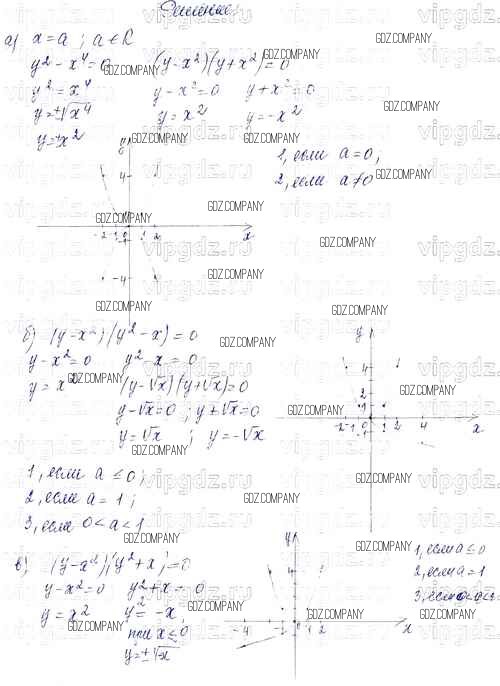 Решение.
а) x = a ; a ∈ R
y² - x⁴ = 0 (y-x²)(y+x²) = 0
y² = x⁴ y-x² = 0 y+x² = 0
y = ±√x⁴ y = x² y = -x²
y = ±x²
1, если a = 0;
2, если a ≠ 0
y
4
-2 -1 0 1 2 x
-4
б) (y-x²)(y²-x) = 0
y-x² = 0 y²-x = 0
y = x² (y-√x)(y+√x) = 0
y-√x = 0 ; y+√x = 0
y = √x ; y = -√x
y
4
2
-2 -1 0 1 2 4 x
1, если a ≤ 0;
2, если a = 1;
3, если 0 < a < 1
в) (y-x²)(y²+x) = 0
y-x² = 0 y²+x = 0
y = x² y² = -x
при x ≤ 0
y = ±√-x
y
4
-4 -2 1 2 x
1, если a ≤ 0
2, если a = 1
3, если
GDZ.COMPANY
vipgdz.ru